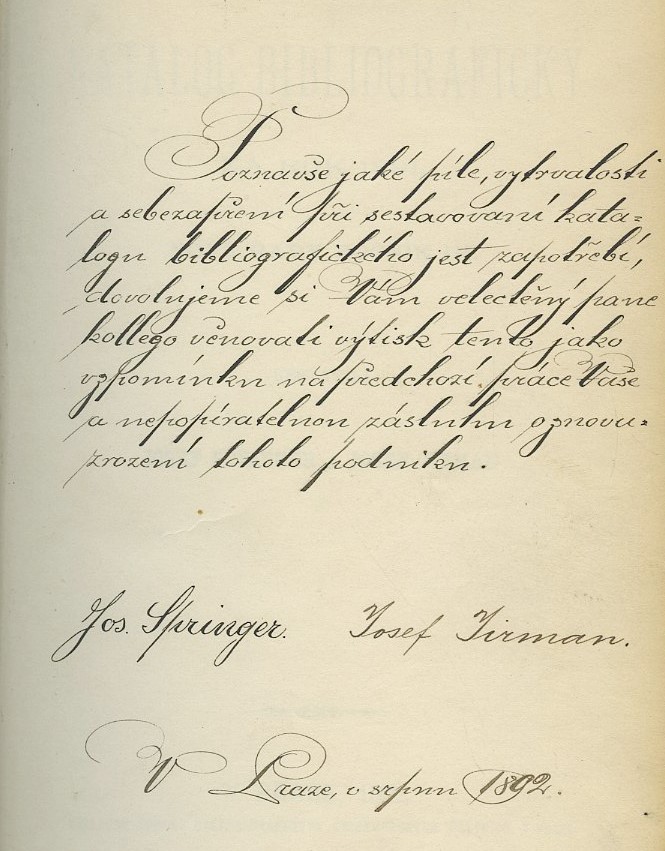 Poznavše jaké píle, vytrvalosti
a sebezapření při sestavovaní kata-
logu bibliografického jest zapotřebí,
dovolujeme si Vám velectěný pane
kollego věnovati výtisk tento jako
vzpomínku na předchozí práce Vaše
a nepopíratelnou zásluhu o znovu-
zrození tohoto podniku.
Jos. Springer. Josef Jirman.
V Praze, v srpnu 1892.